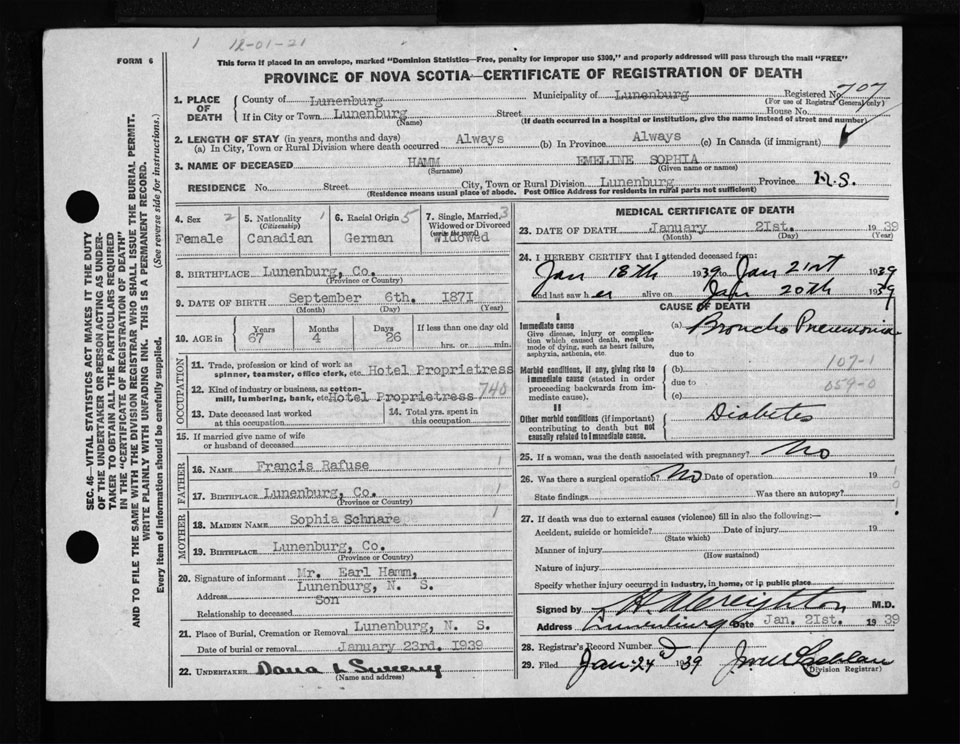 1 12-01-21
FORM 6
This form if placed in an envelope, marked "Dominion Statistics—Free, penalty for improper use $300," and properly addressed will pass through the mail "FREE"
PROVINCE OF NOVA SCOTIA—CERTIFICATE OF REGISTRATION OF DEATH
1. PLACE OF DEATH
County of Lunenburg Municipality of Lunenburg Registered No. 707
(For use of Registrar General only)
If in City or Town Lunenburg Street House No.
(Name) (If death occurred in a hospital or institution, give the name instead of street and number)
2. LENGTH OF STAY (in years, months and days)
(a) In City, Town or Rural Division where death occurred Always (b) In Province Always (c) In Canada (if immigrant)
3. NAME OF DECEASED HAMM EMELINE SOPHIA
(Surname) (Given name or names)
RESIDENCE No. Street City, Town or Rural Division Lunenburg Province N.S.
(Residence means usual place of abode. Post Office Address for residents in rural parts not sufficient)
SEC. 46—VITAL STATISTICS ACT MAKES IT THE DUTY
OF THE UNDERTAKER OR PERSON ACTING AS UNDER-
TAKER TO OBTAIN ALL THE PARTICULARS REQUIRED
IN THE "CERTIFICATE OF REGISTRATION OF DEATH"
AND TO FILE THE SAME WITH THE DIVISION REGISTRAR WHO SHALL ISSUE THE BURIAL PERMIT.
WRITE PLAINLY WITH UNFADING INK. THIS IS A PERMANENT RECORD.
Every item of information should be carefully supplied. (See reverse side for instructions.)
4. Sex 2
Female
5. Nationality 1
(Citizenship)
Canadian
6. Racial Origin 5
German
7. Single, Married, 3
Widowed or Divorced
(write the word)
Widowed
8. BIRTHPLACE Lunenburg, Co.
(Province or Country)
9. DATE OF BIRTH September 6th. 1871
(Month) (Day) (Year)
10. AGE in
Years Months Days If less than one day old
67 4 26 hrs. or min.
OCCUPATION
11. Trade, profession or kind of work as
spinner, teamster, office clerk, etc. Hotel Proprietress
12. Kind of industry or business, as cotton-
mill, lumbering, bank, etc. Hotel Proprietress 740
13. Date deceased last worked
at this occupation
14. Total yrs. spent in
this occupation
15. If married give name of wife
or husband of deceased
FATHER
16. NAME Francis Rafuse 1
17. BIRTHPLACE Lunenburg, Co. 1
(Province or Country)
MOTHER
18. MAIDEN NAME Sophia Schnare 1
19. BIRTHPLACE Lunenburg, Co.
(Province or Country)
20. Signature of informant Mr. Earl Hamm,
Address Lunenburg, N. S.
Relationship to deceased Son
21. Place of Burial, Cremation or Removal Lunenburg, N. S.
Date of burial or removal January 23rd. 1939
22. UNDERTAKER Dana L Sweeny
(Name and address)
MEDICAL CERTIFICATE OF DEATH
23. DATE OF DEATH January 21st. 1939
(Month) (Day) (Year)
24. I HEREBY CERTIFY that I attended deceased from:
Jan 18th 1939 to Jan 21st 1939
and last saw her alive on Jan 20th 1939
CAUSE OF DEATH
I
Immediate cause
Give disease, injury or complica-
tion which caused death, not the
mode of dying, such as heart failure,
asphyxia, asthenia, etc.
(a) Broncho Pneumonia
due to
Morbid conditions, if any, giving rise to
immediate cause (stated in order
proceeding backwards from im-
mediate cause).
(b) 107-1
due to 059-0
(c)
II
Other morbid conditions (if important)
contributing to death but not
causally related to immediate cause.
Diabetes
25. If a woman, was the death associated with pregnancy? No
26. Was there a surgical operation? No Date of operation 19
State findings Was there an autopsy?
27. If death was due to external causes (violence) fill in also the following:—
Accident, suicide or homicide? Date of injury 19
(State which)
Manner of injury
(How sustained)
Nature of injury
Specify whether injury occurred in industry, in home, or in public place
Signed by M.D.
Address Lunenburg Date Jan. 21st. 1939
28. Registrar's Record Number
29. Filed Jan. 24 1939
(Division Registrar)